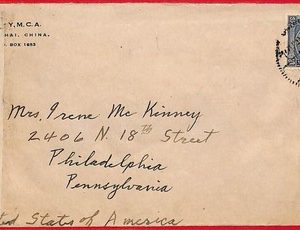 Y.M.C.A.
HAI, CHINA,
BOX 1693
Mrs. Irene McKinney
2406 N. 18th Street
Philadelphia
Pennsylvania
ted States of America